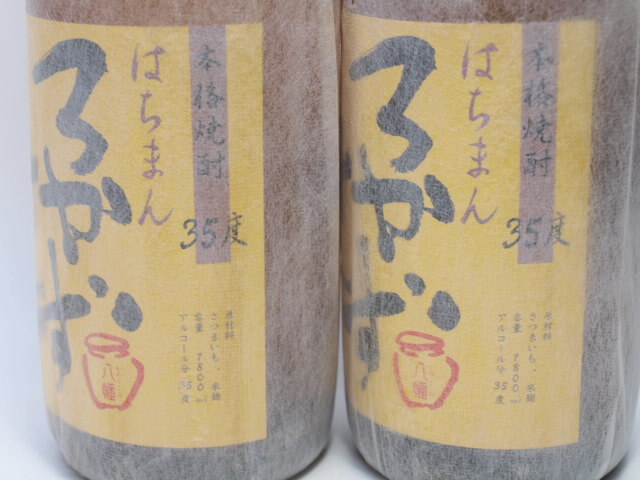 本格焼酎
35度
はちまん
ろかず
原材料
さつまいも、米麹
容量 1800ml
アルコール分 35度
八幡
本格焼酎
35度
はちまん
ろかず
原材料
さつまいも、米麹
容量 1800ml
アルコール分 35度
八幡